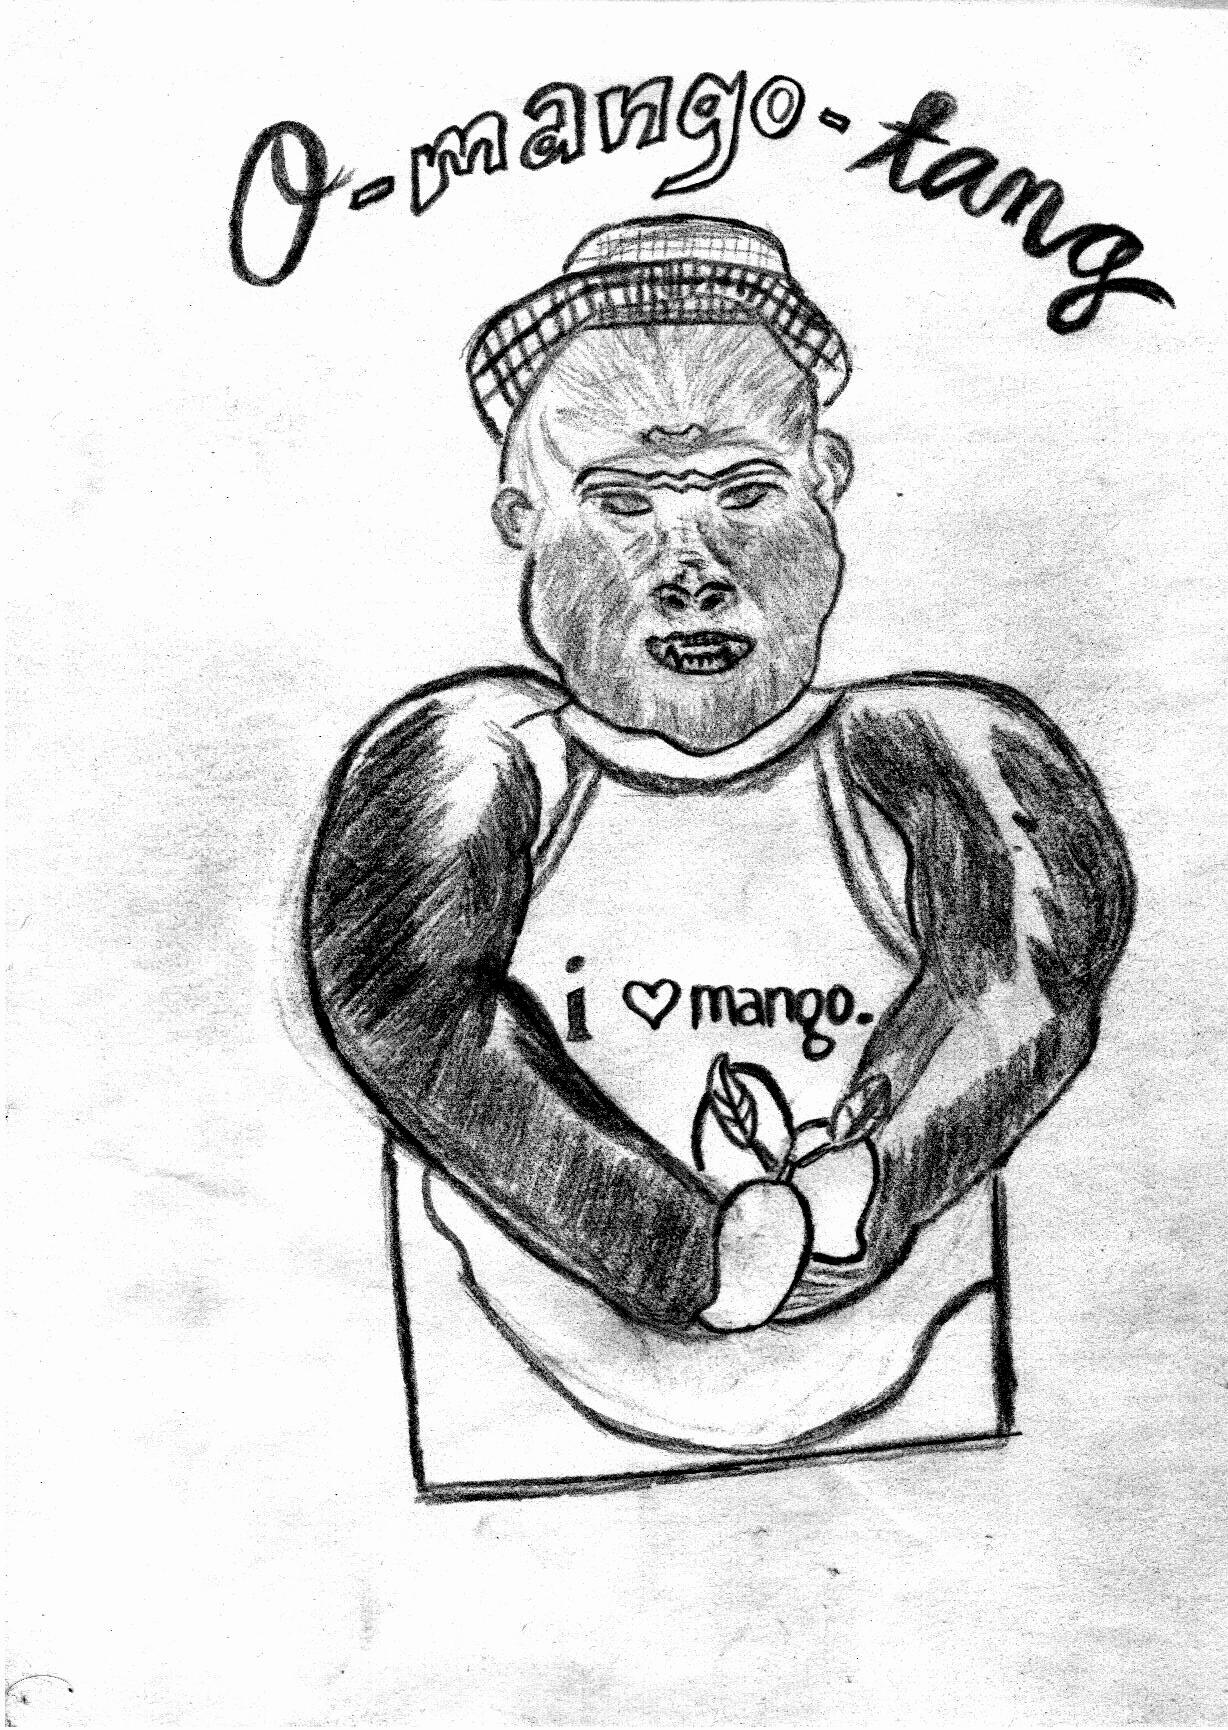 O-mango-tang
i ♡ mango.